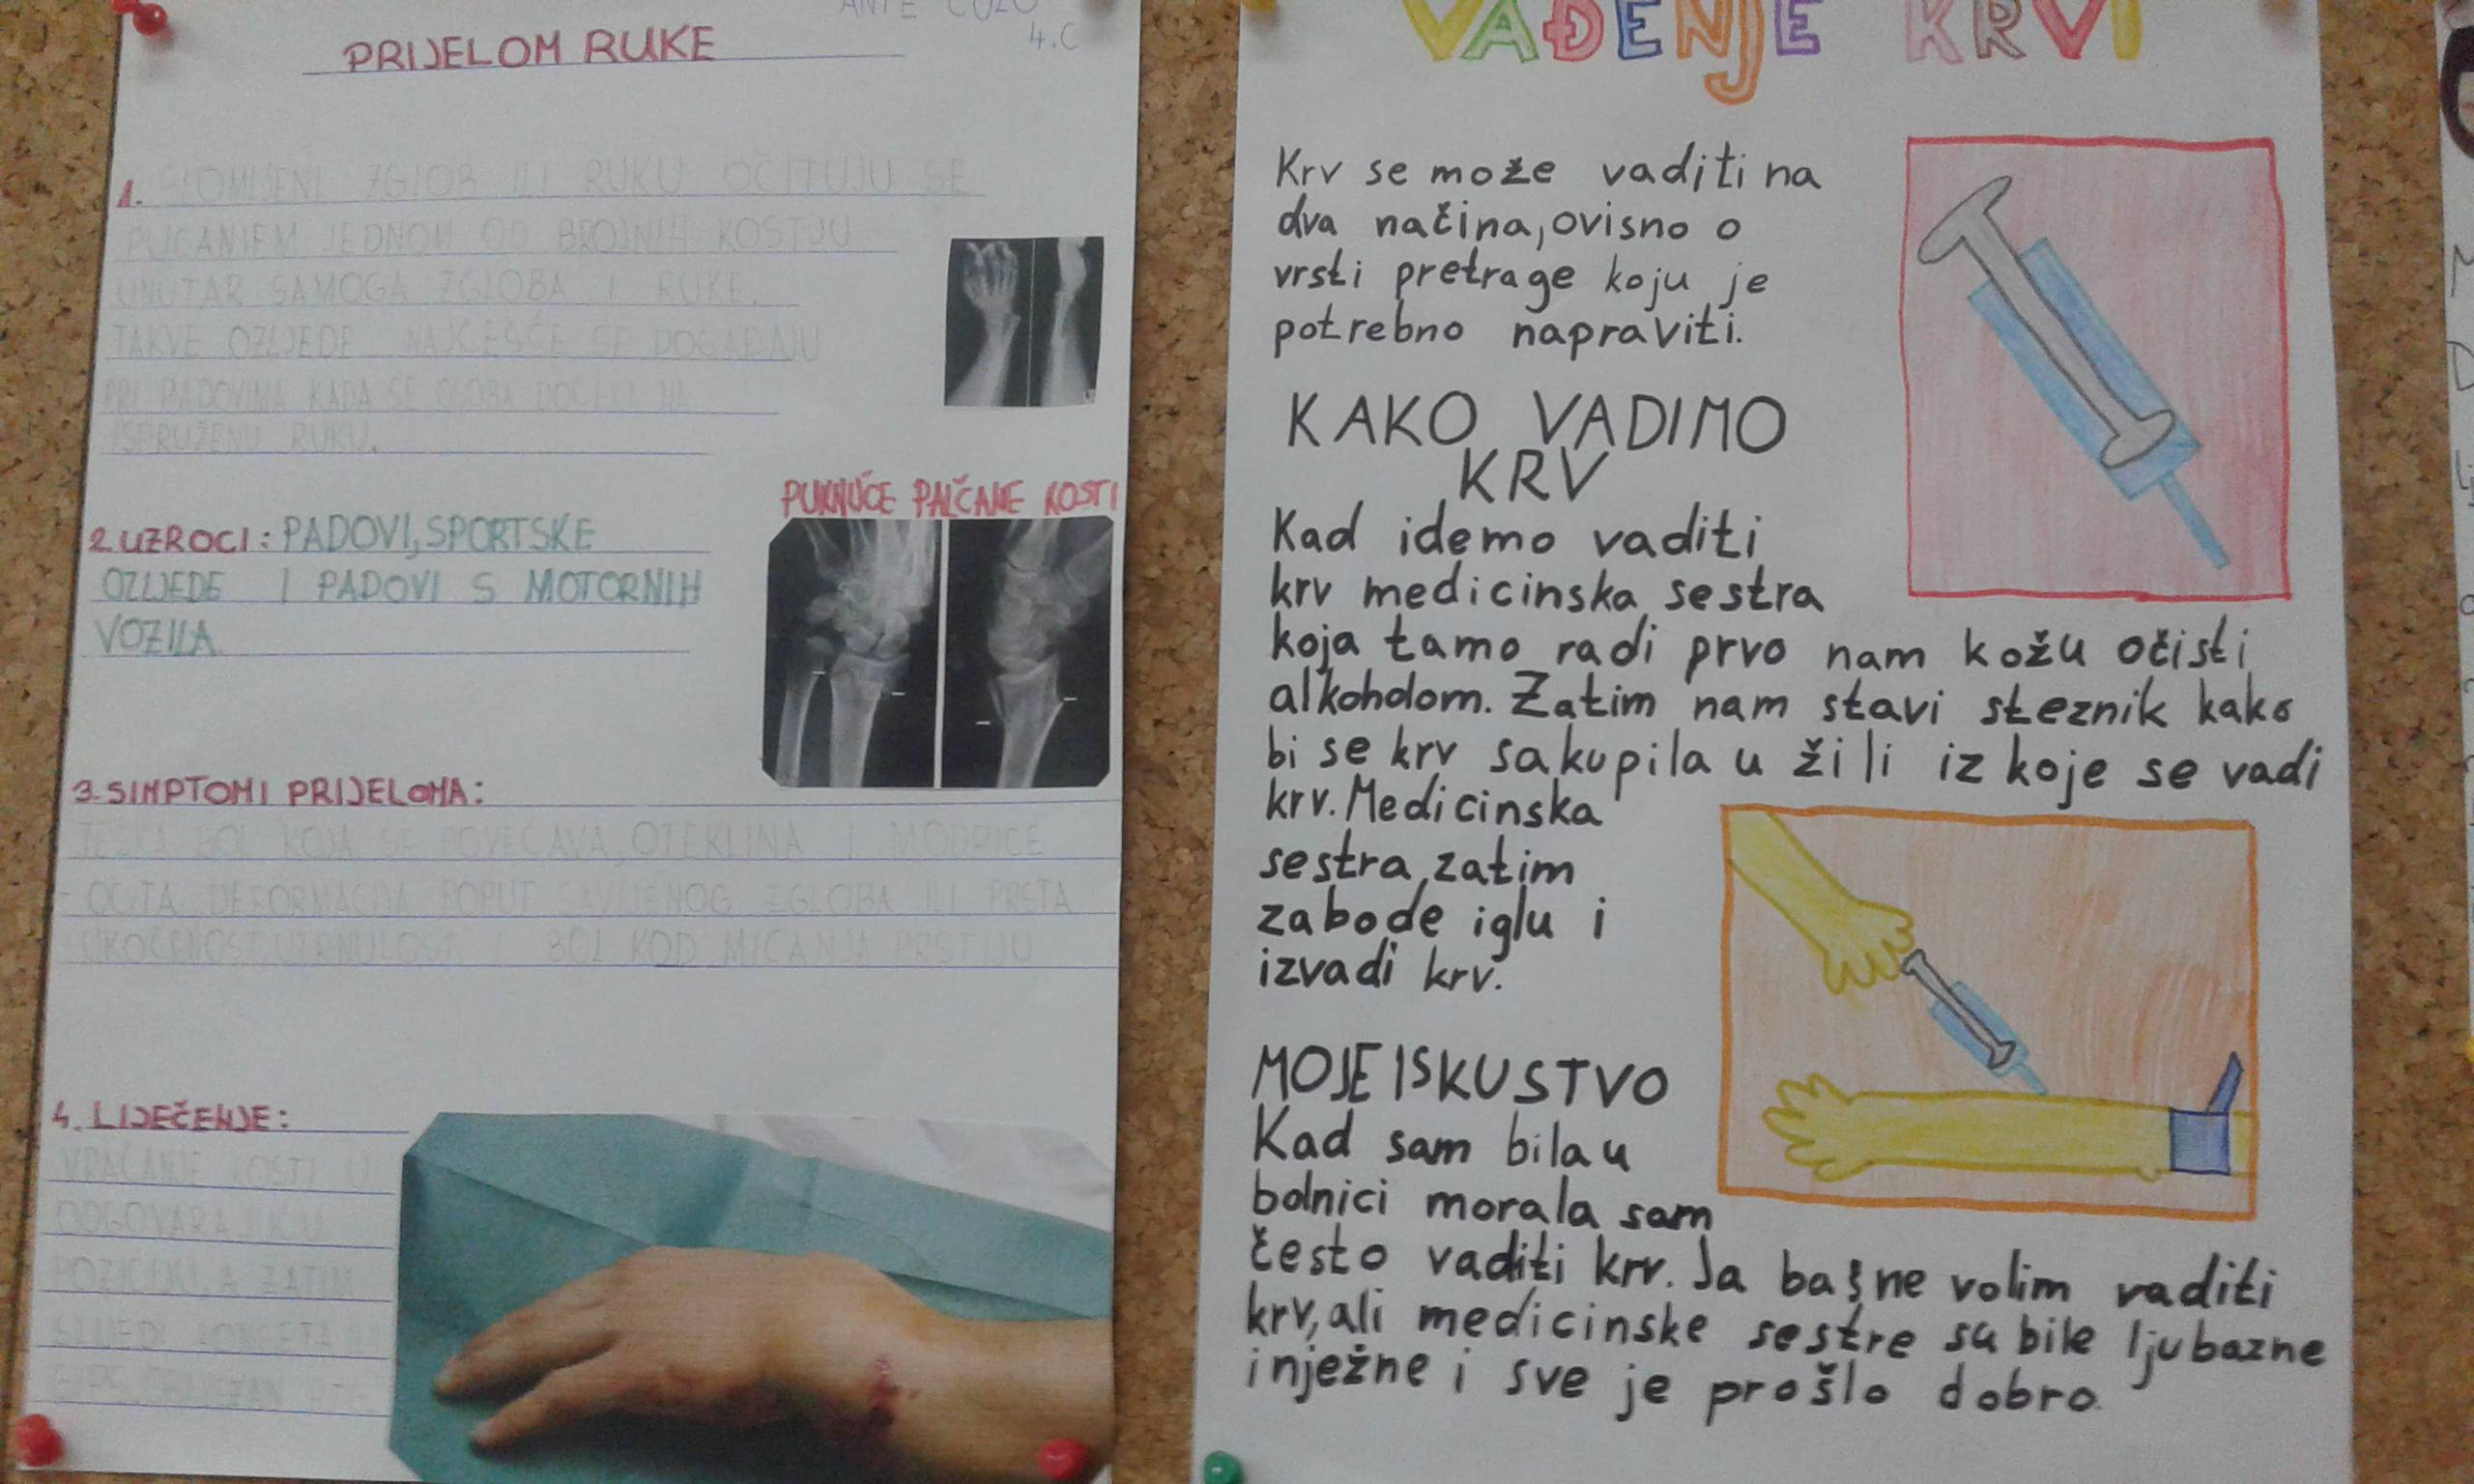 PRIJELOM RUKE
4.C
1. SLOMLJENI ZGLOB ILI RUKU OČITUJU SE
PUCANJEM JEDNOM OD BROJNIH KOSTIJU
UNUTAR SAMOGA ZGLOBA I RUKE.
TAKVE OZLJEDE NAJČEŠĆE SE DOGAĐAJU
PRI PADOVIMA KADA SE OSOBA DOČEKA NA
ISPRUŽENU RUKU.
PUKNUĆE PALČANE KOSTI
2. UZROCI: PADOVI, SPORTSKE
OZLJEDE I PADOVI S MOTORNIH
VOZILA
3. SIMPTOMI PRIJELOMA:
BOL KOJA SE POVEĆAVA, OTEKLINA I MODRICE
- OČITA DEFORMACIJA POPUT SAVIJENOG ZGLOBA ILI PRSTA
UKOČENOST, UTRNULOST I BOL KOD MICANJA PRSTIJU
4. LIJEČENJE:
VRAĆANJE KOSTI U
ODGOVARAJUĆU
POZICIJU A ZATIM
SLIJEDI
VAĐENJE KRVI
Krv se može vaditi na
dva načina, ovisno o
vrsti pretrage koju je
potrebno napraviti.
KAKO VADIMO
KRV
Kad idemo vaditi
krv medicinska sestra
koja tamo radi prvo nam kožu očisti
alkoholom. Zatim nam stavi steznik kako
bi se krv sakupila u žili iz koje se vadi
krv. Medicinska
sestra zatim
zabode iglu i
izvadi krv.
MOJE ISKUSTVO
Kad sam bila u
bolnici morala sam
često vaditi krv. Ja baš ne volim vaditi
krv, ali medicinske sestre su bile ljubazne
i nježne i sve je prošlo dobro.